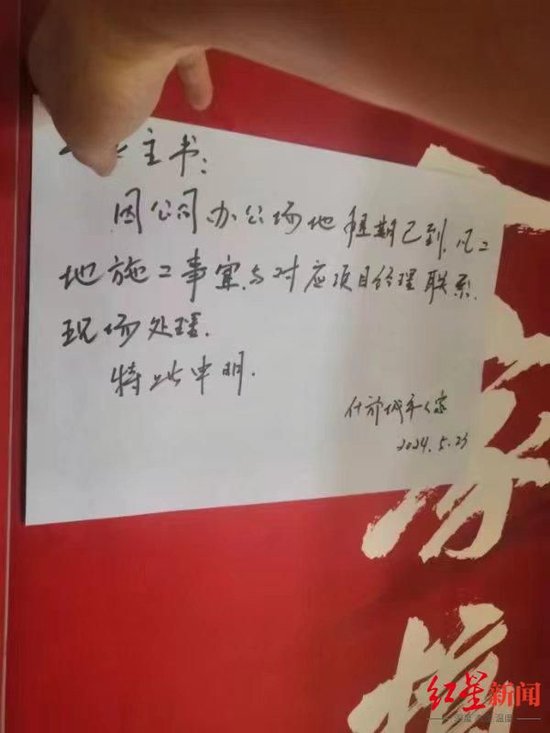 主书:
因公司办公场地租期已到,凡工
地施工事宜与对应项目经理联系.
现场处理.
特此申明.
什邡城市人家
2024.5.23
家
红星新闻
深度 温度